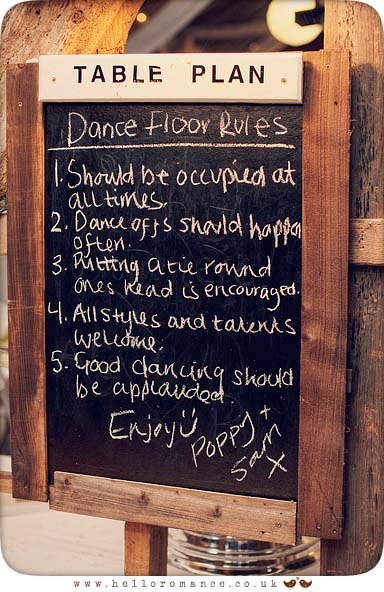 TABLE PLAN
Dance Floor Rules
1. Should be occupied at
all times.
2. Dance offs should happen
often.
3. Putting a tie round
ones head is encouraged.
4. All styles and talents
welcome.
5. Good dancing should
be applauded
Enjoy Ü
Poppy +
Sam
X
www.helloromance.co.uk